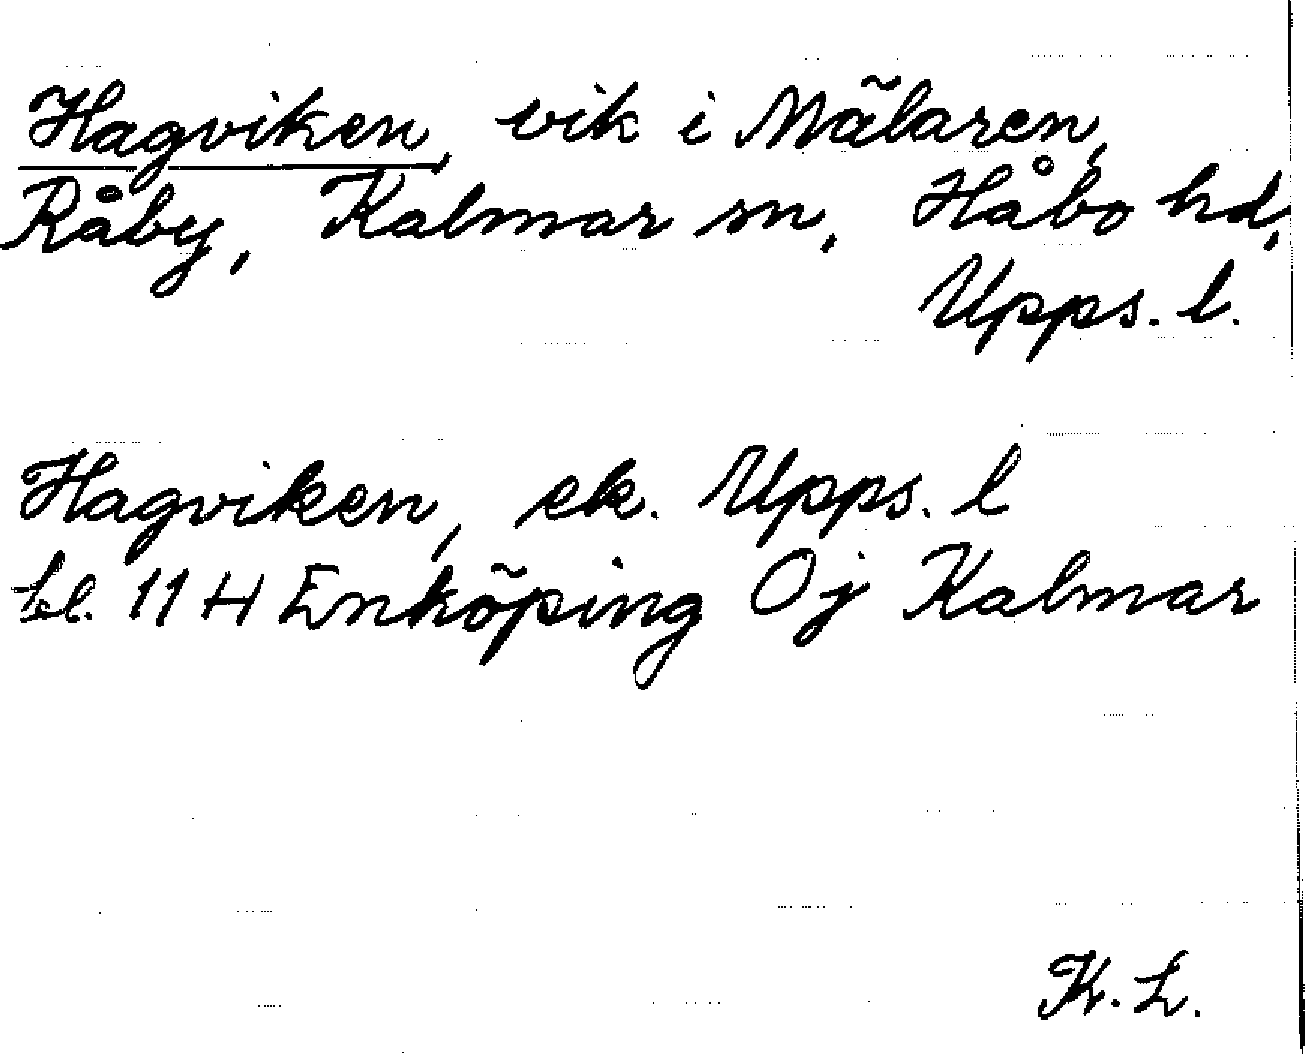 Hagviken, vik i Mälaren,
Råby, Kalmar sn, Håbo hd,
Upps. l.
Hagviken, ek. Upps. l
bl. 11 H Enköping Oj Kalmar
K. L.